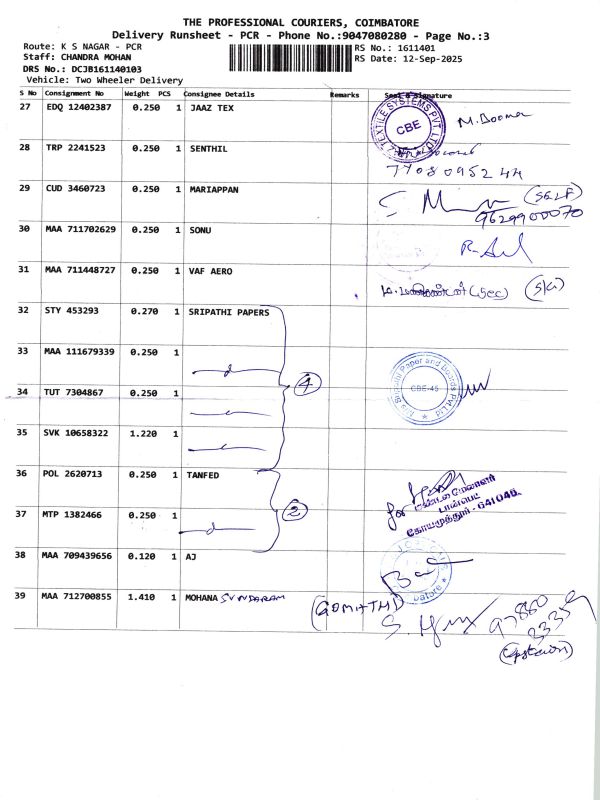 THE PROFESSIONAL COURIERS, COIMBATORE
Delivery Runsheet - PCR - Phone No.:9047080280 - Page No.:3
Route: K S NAGAR - PCR
RS No.: 1611401
Staff: CHANDRA MOHAN
RS Date: 12-Sep-2025
DRS No.: DCJB161140103
Vehicle: Two Wheeler Delivery
S No Consignment No Weight PCS Consignee Details Remarks Seal & Signature
27 EDQ 12402387 0.250 1 JAAZ TEX
TEXTILE SYSTEMS PVT. LTD. CBE
28 TRP 2241523 0.250 1 SENTHIL
7708095244
29 CUD 3460723 0.250 1 MARIAPPAN
(SELF)
9629900070
30 MAA 711702629 0.250 1 SONU
31 MAA 711448727 0.250 1 VAF AERO
32 STY 453293 0.270 1 SRIPATHI PAPERS
33 MAA 111679339 0.250 1
4
Paper and Boards Pvt Ltd
CBE-45
34 TUT 7304867 0.250 1
35 SVK 10658322 1.220 1
36 POL 2620713 0.250 1 TANFED
for
மண்டல மேலாளர்
டான்பெட்
கோயமுத்தூர் - 641046.
37 MTP 1382466 0.250 1
2
38 MAA 709439656 0.120 1 AJ
39 MAA 712700855 1.410 1 MOHANA SUNDARAM
(GOMATHI)
97880